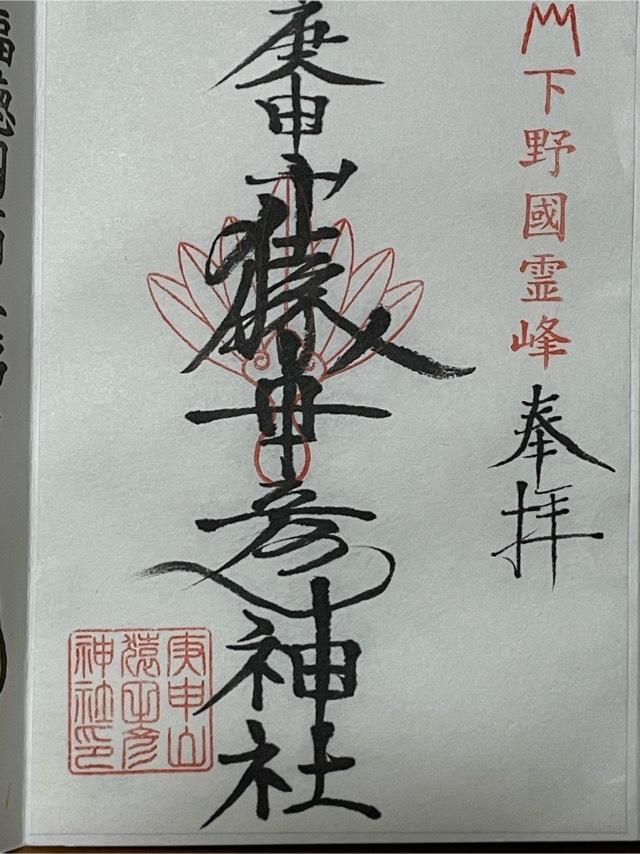 下野國霊峰
奉拝
庚申山猿田彦神社
庚申山
猿田彦
神社印